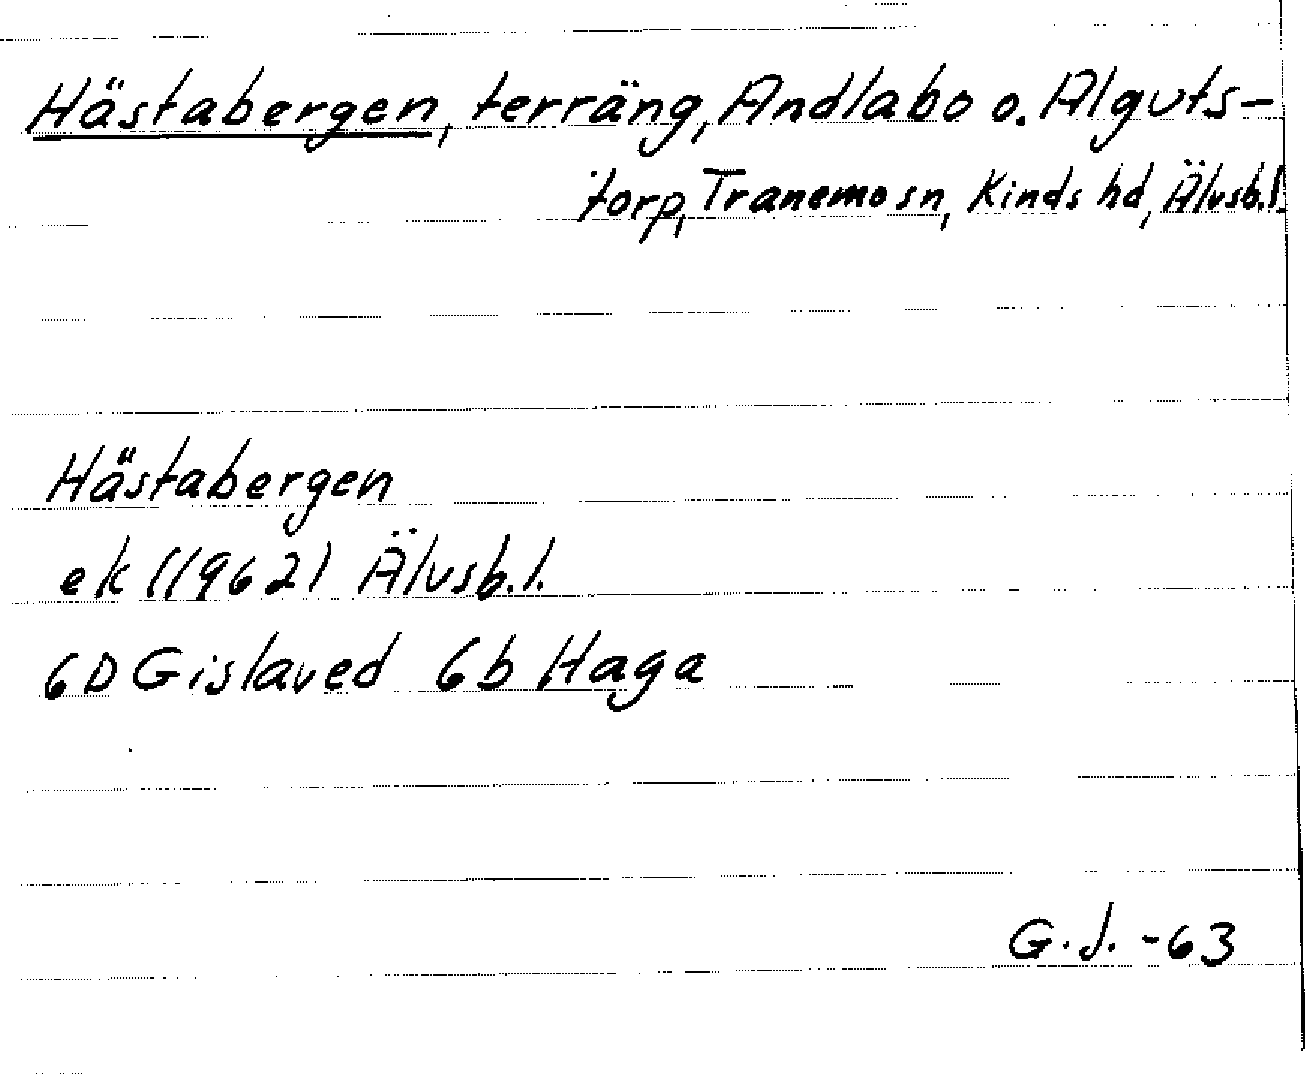 Hästabergen, terräng, Andlabo o. Alguts-
torp, Tranemo sn, Kinds hd, Älvsb.l.
Hästabergen
ek (1962) Älvsb.l.
6D Gislaved 6b Haga
G.J. -63